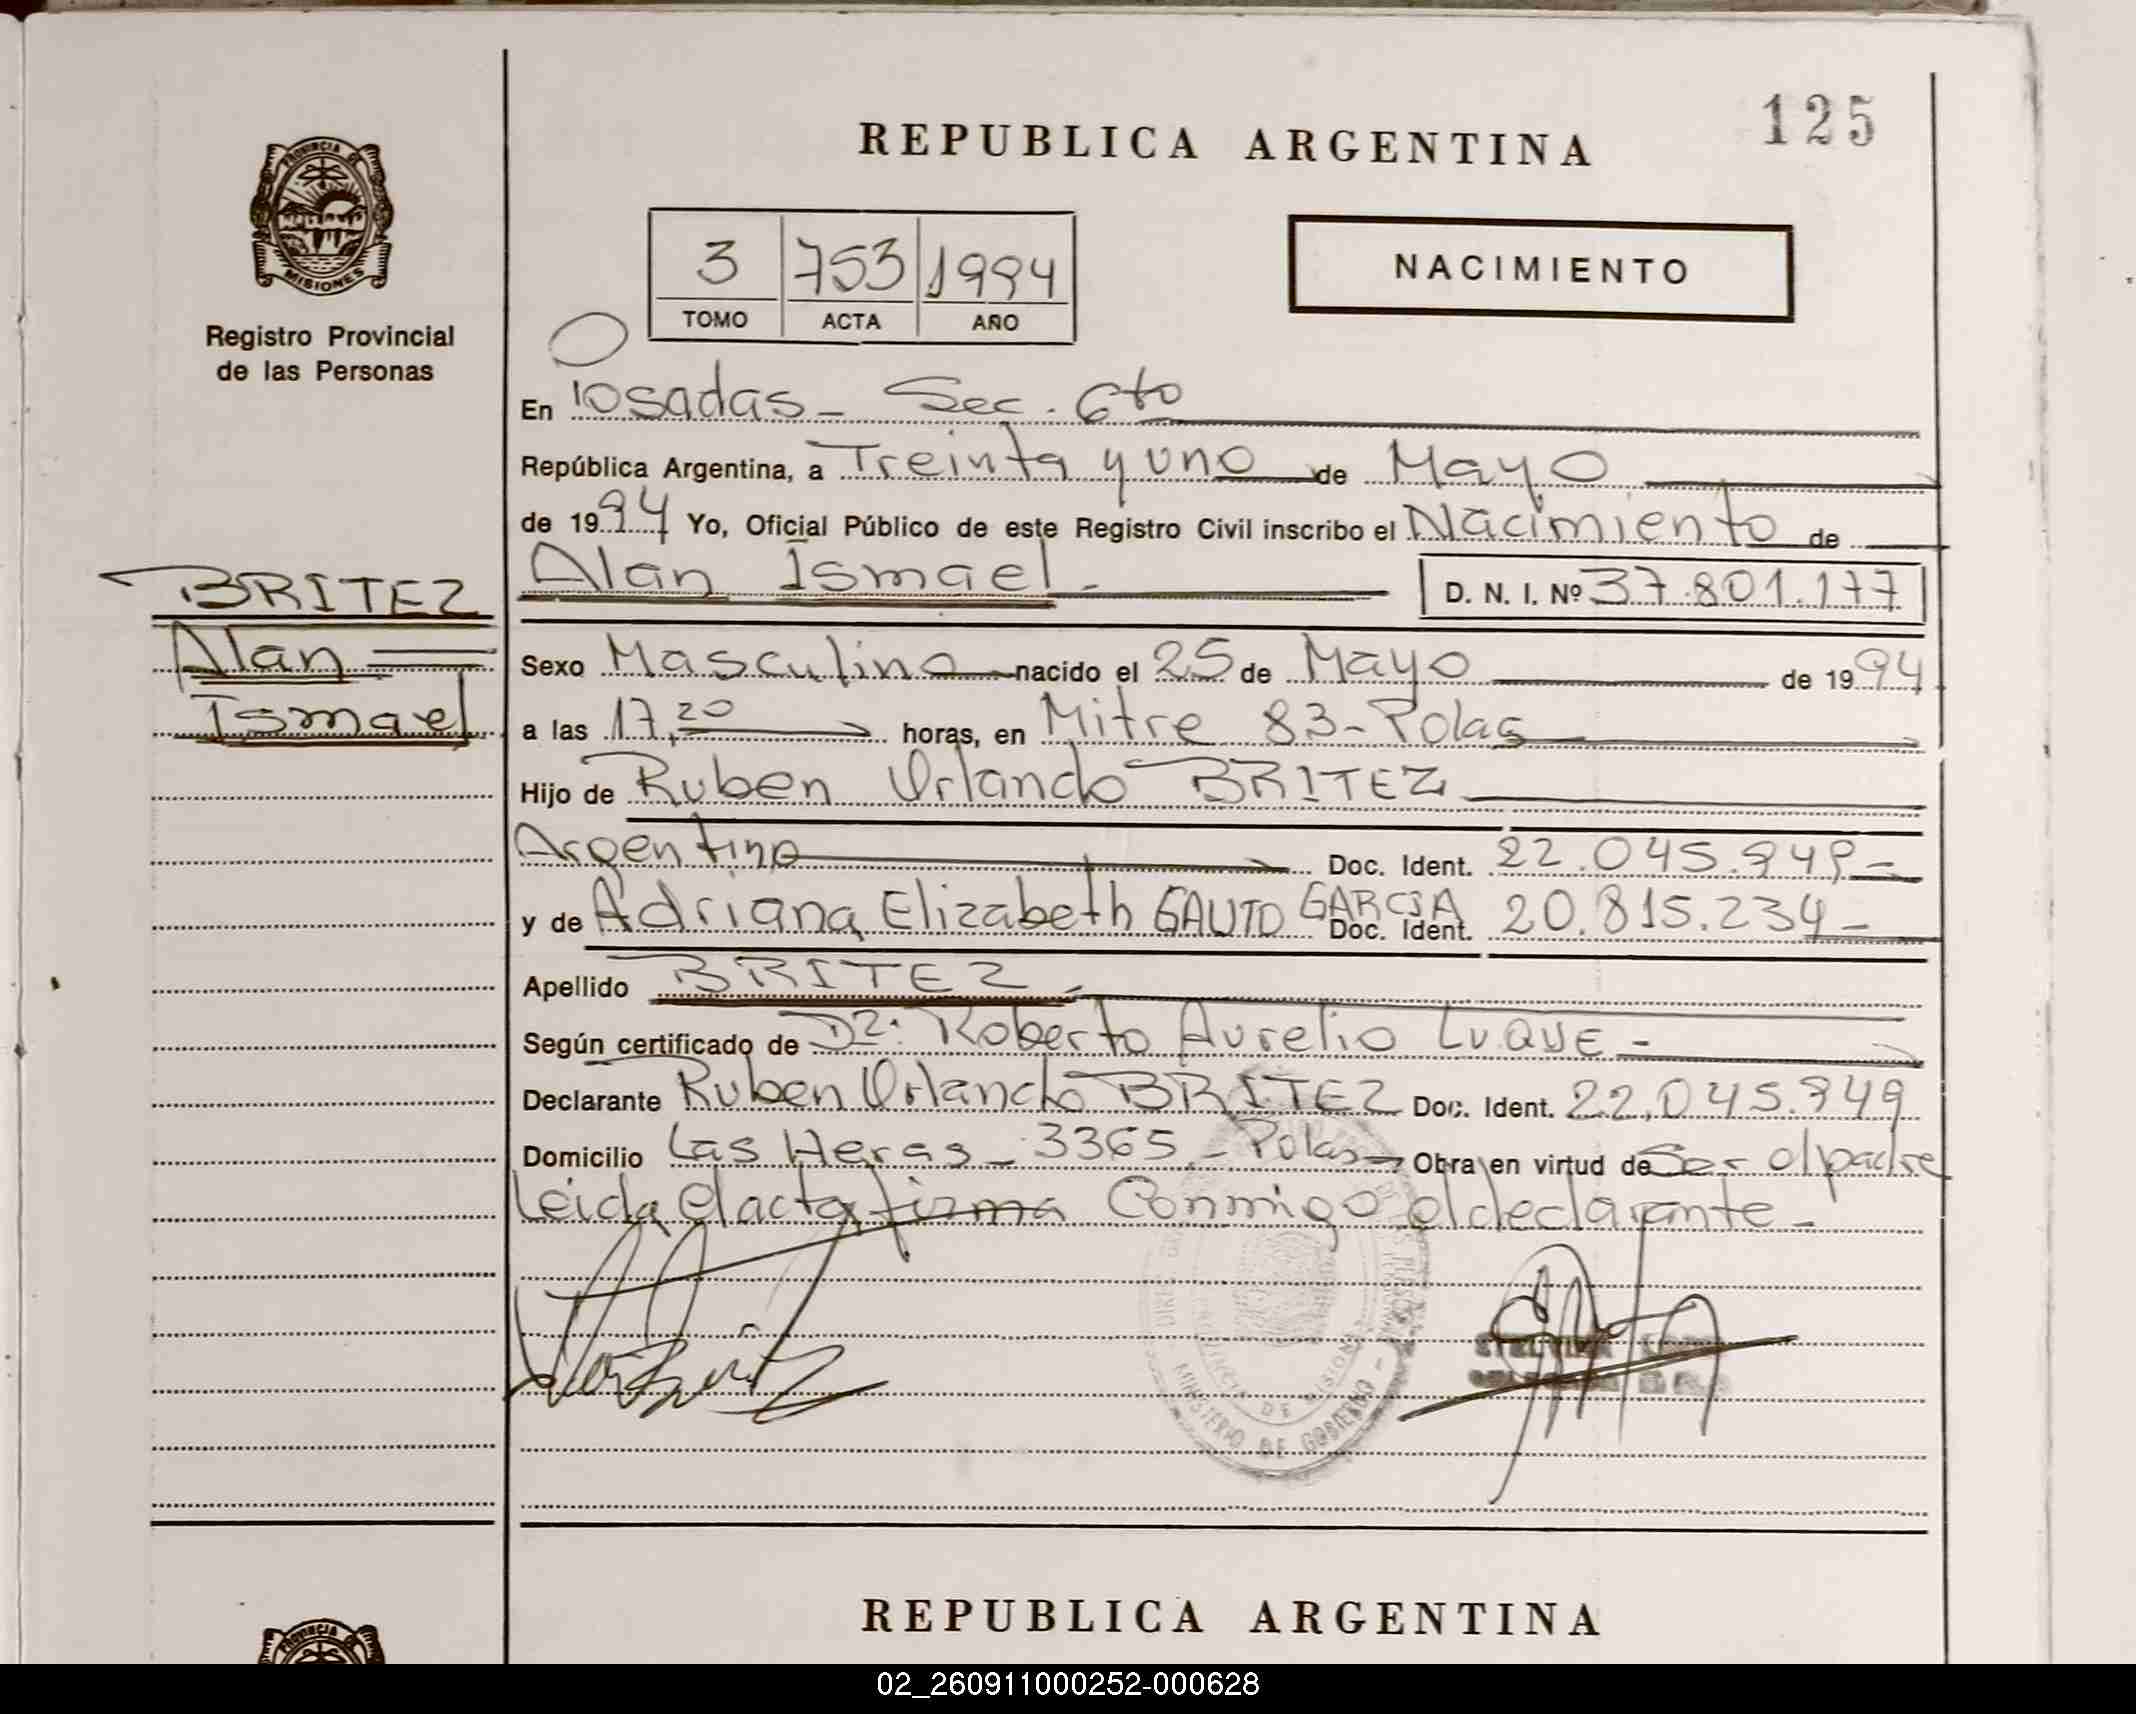 125
REPUBLICA ARGENTINA
PROVINCIA DE
MISIONES
Registro Provincial
de las Personas
3 753 1994
TOMO ACTA AÑO
NACIMIENTO
En Posadas - Sec. 6to
República Argentina, a Treinta y uno de Mayo
de 1994 Yo, Oficial Público de este Registro Civil inscribo el Nacimiento de
BRITEZ
Alan
Ismael
Alan Ismael - D. N. I. Nº 37.801.177
Sexo Masculino nacido el 25 de Mayo de 1994
a las 17,20 horas, en Mitre 83 - Pdas
Hijo de Ruben Orlando BRITEZ
Argentino Doc. Ident. 22.045.949 -
y de Adriana Elizabeth GAUTO GARCIA Doc. Ident. 20.815.234 -
Apellido BRITEZ -
Según certificado de Dr: Roberto Aurelio LUQUE -
Declarante Ruben Orlando BRITEZ Doc. Ident. 22.045.949
Domicilio Las Heras - 3365 - Pdas Obra en virtud de Ser el padre
Leida el acta firma Conmigo el declarante -
MINISTERIO DE GOBIERNO
REPUBLICA ARGENTINA
PROVINCIA DE
02_260911000252-000628